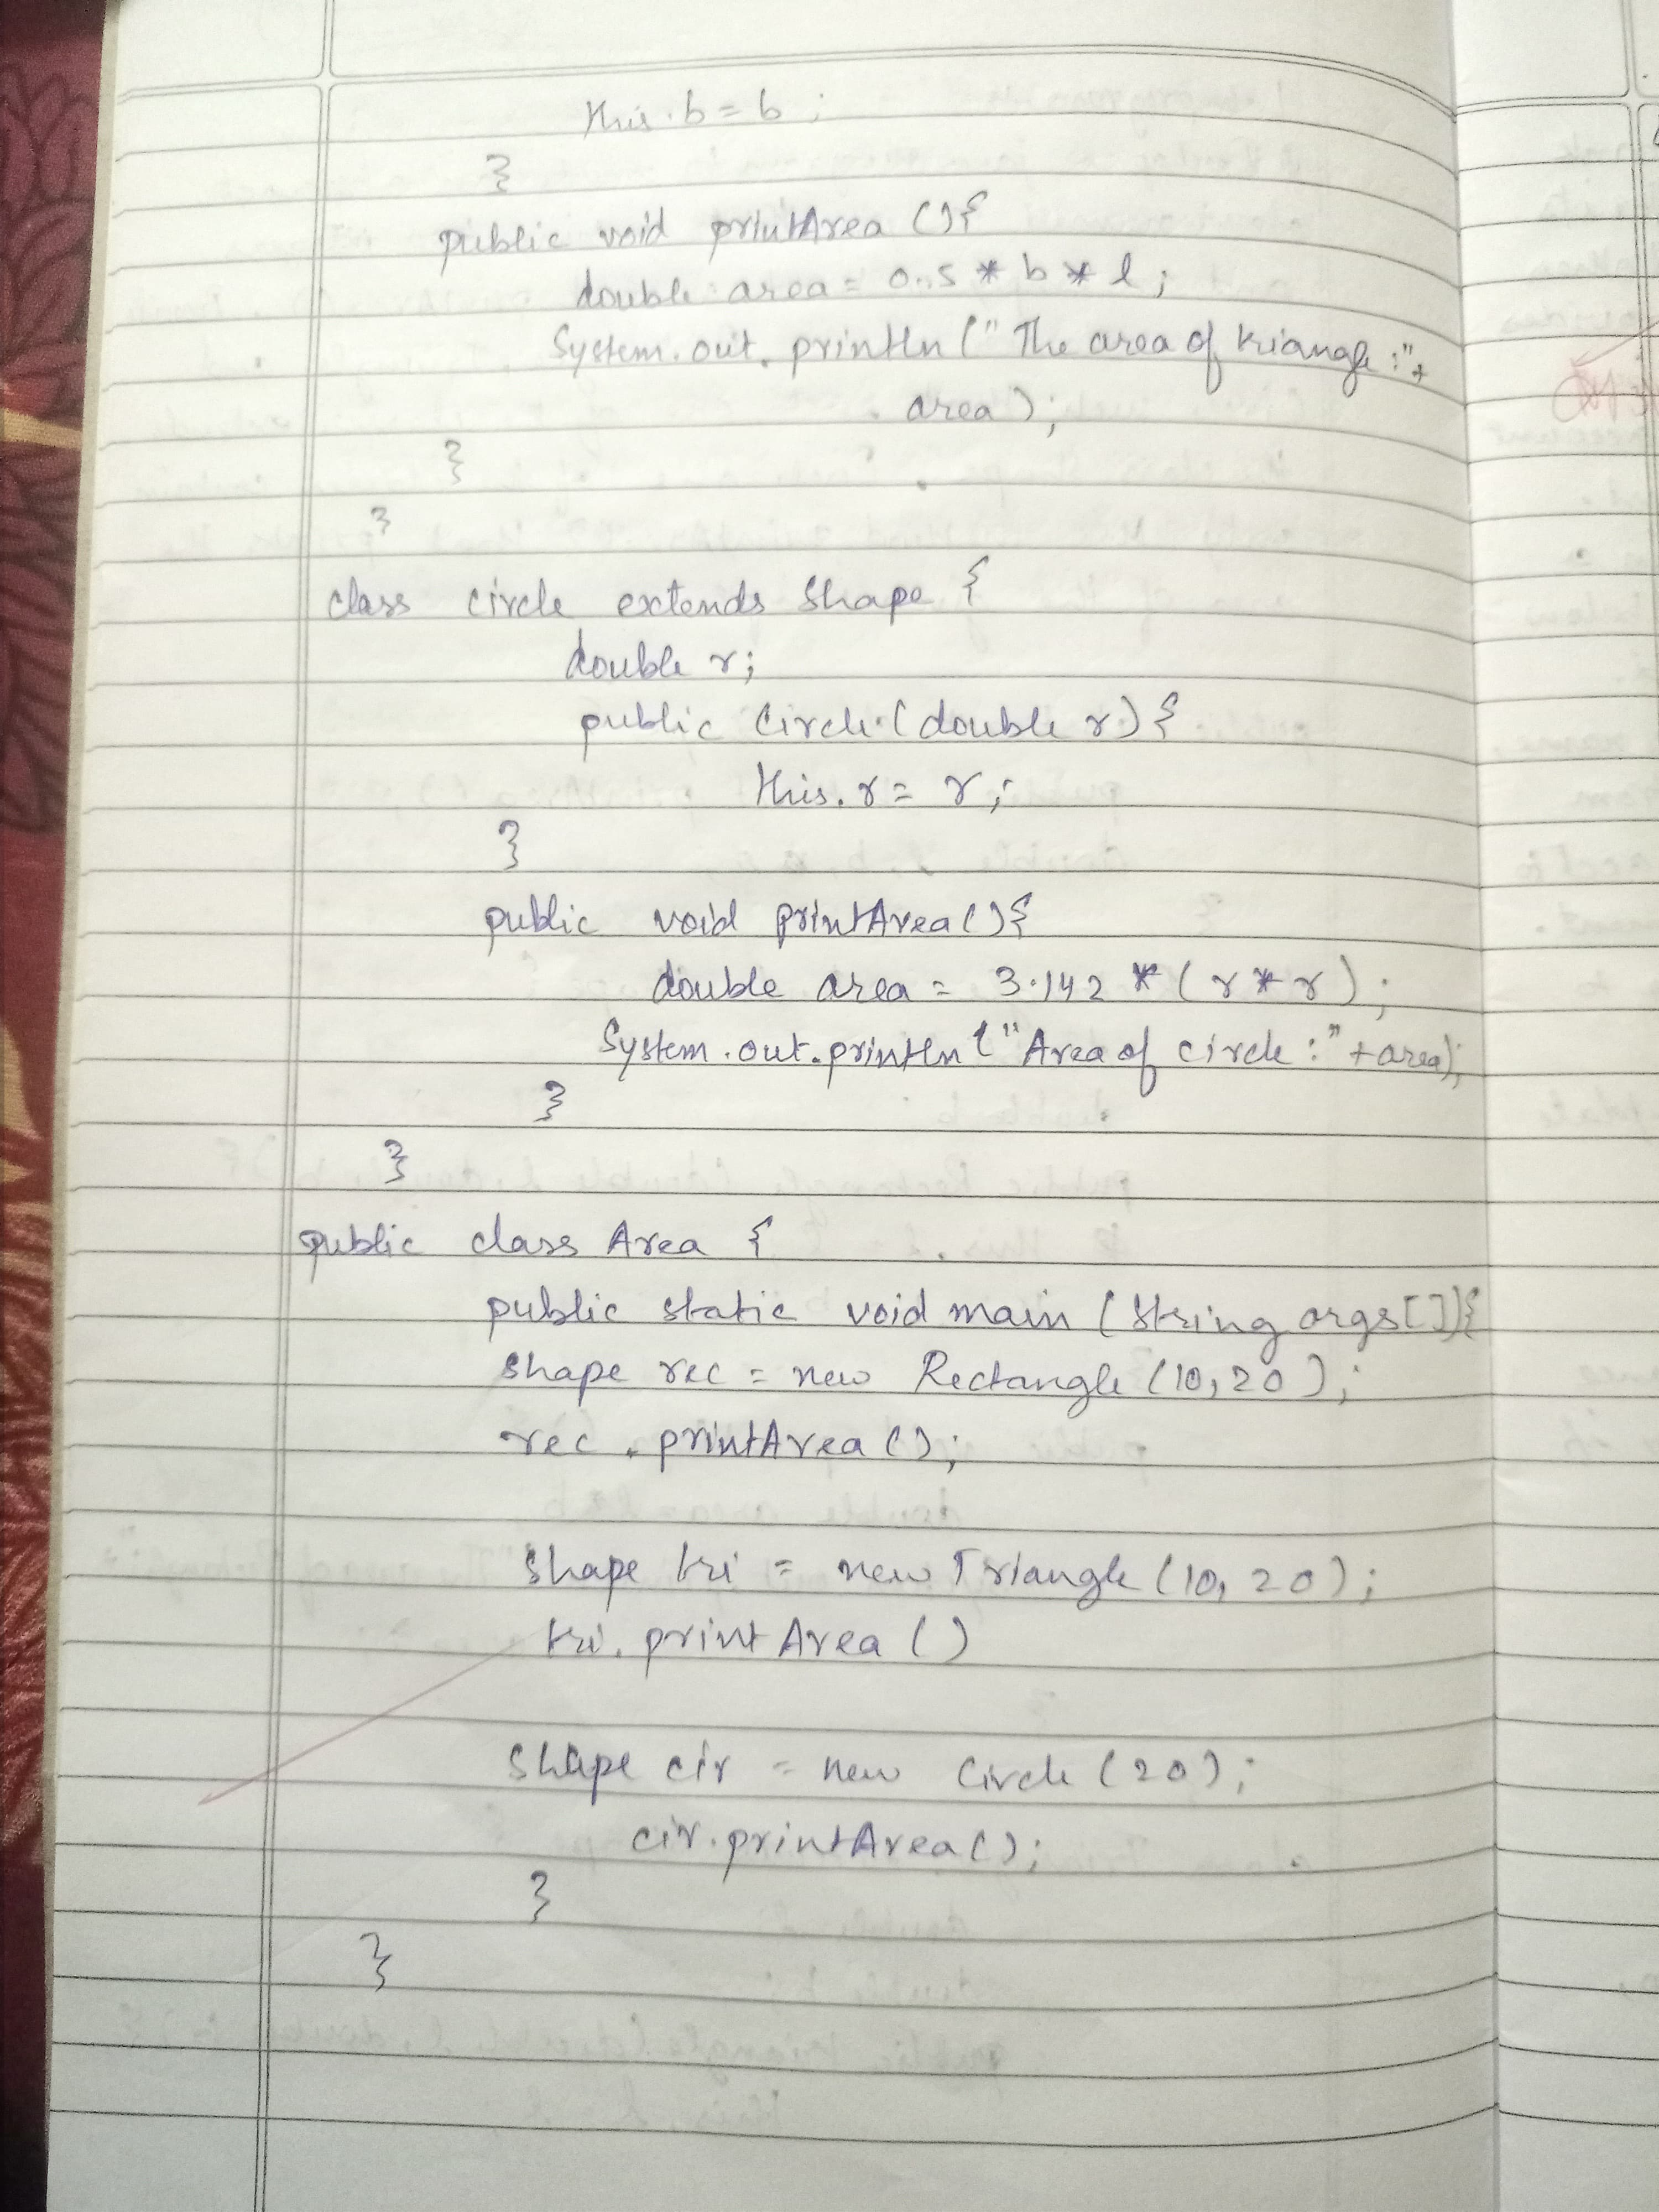 this.b = b;
}
public void printArea () {
double area = 0.5 * b * l;
System.out.println (" The area of triangle :" +
area);
}
}
class circle extends Shape {
double r;
public Circle (double r) {
this.r = r;
}
public void printArea () {
double area = 3.142 * (r * r);
System.out.println ("Area of circle :" + area);
}
}
public class Area {
public static void main (String args[]) {
shape rec = new Rectangle (10, 20);
rec.printArea ();
shape tri = new Triangle (10, 20);
tri.printArea ()
shape cir = new Circle (20);
cir.printArea ();
}
}